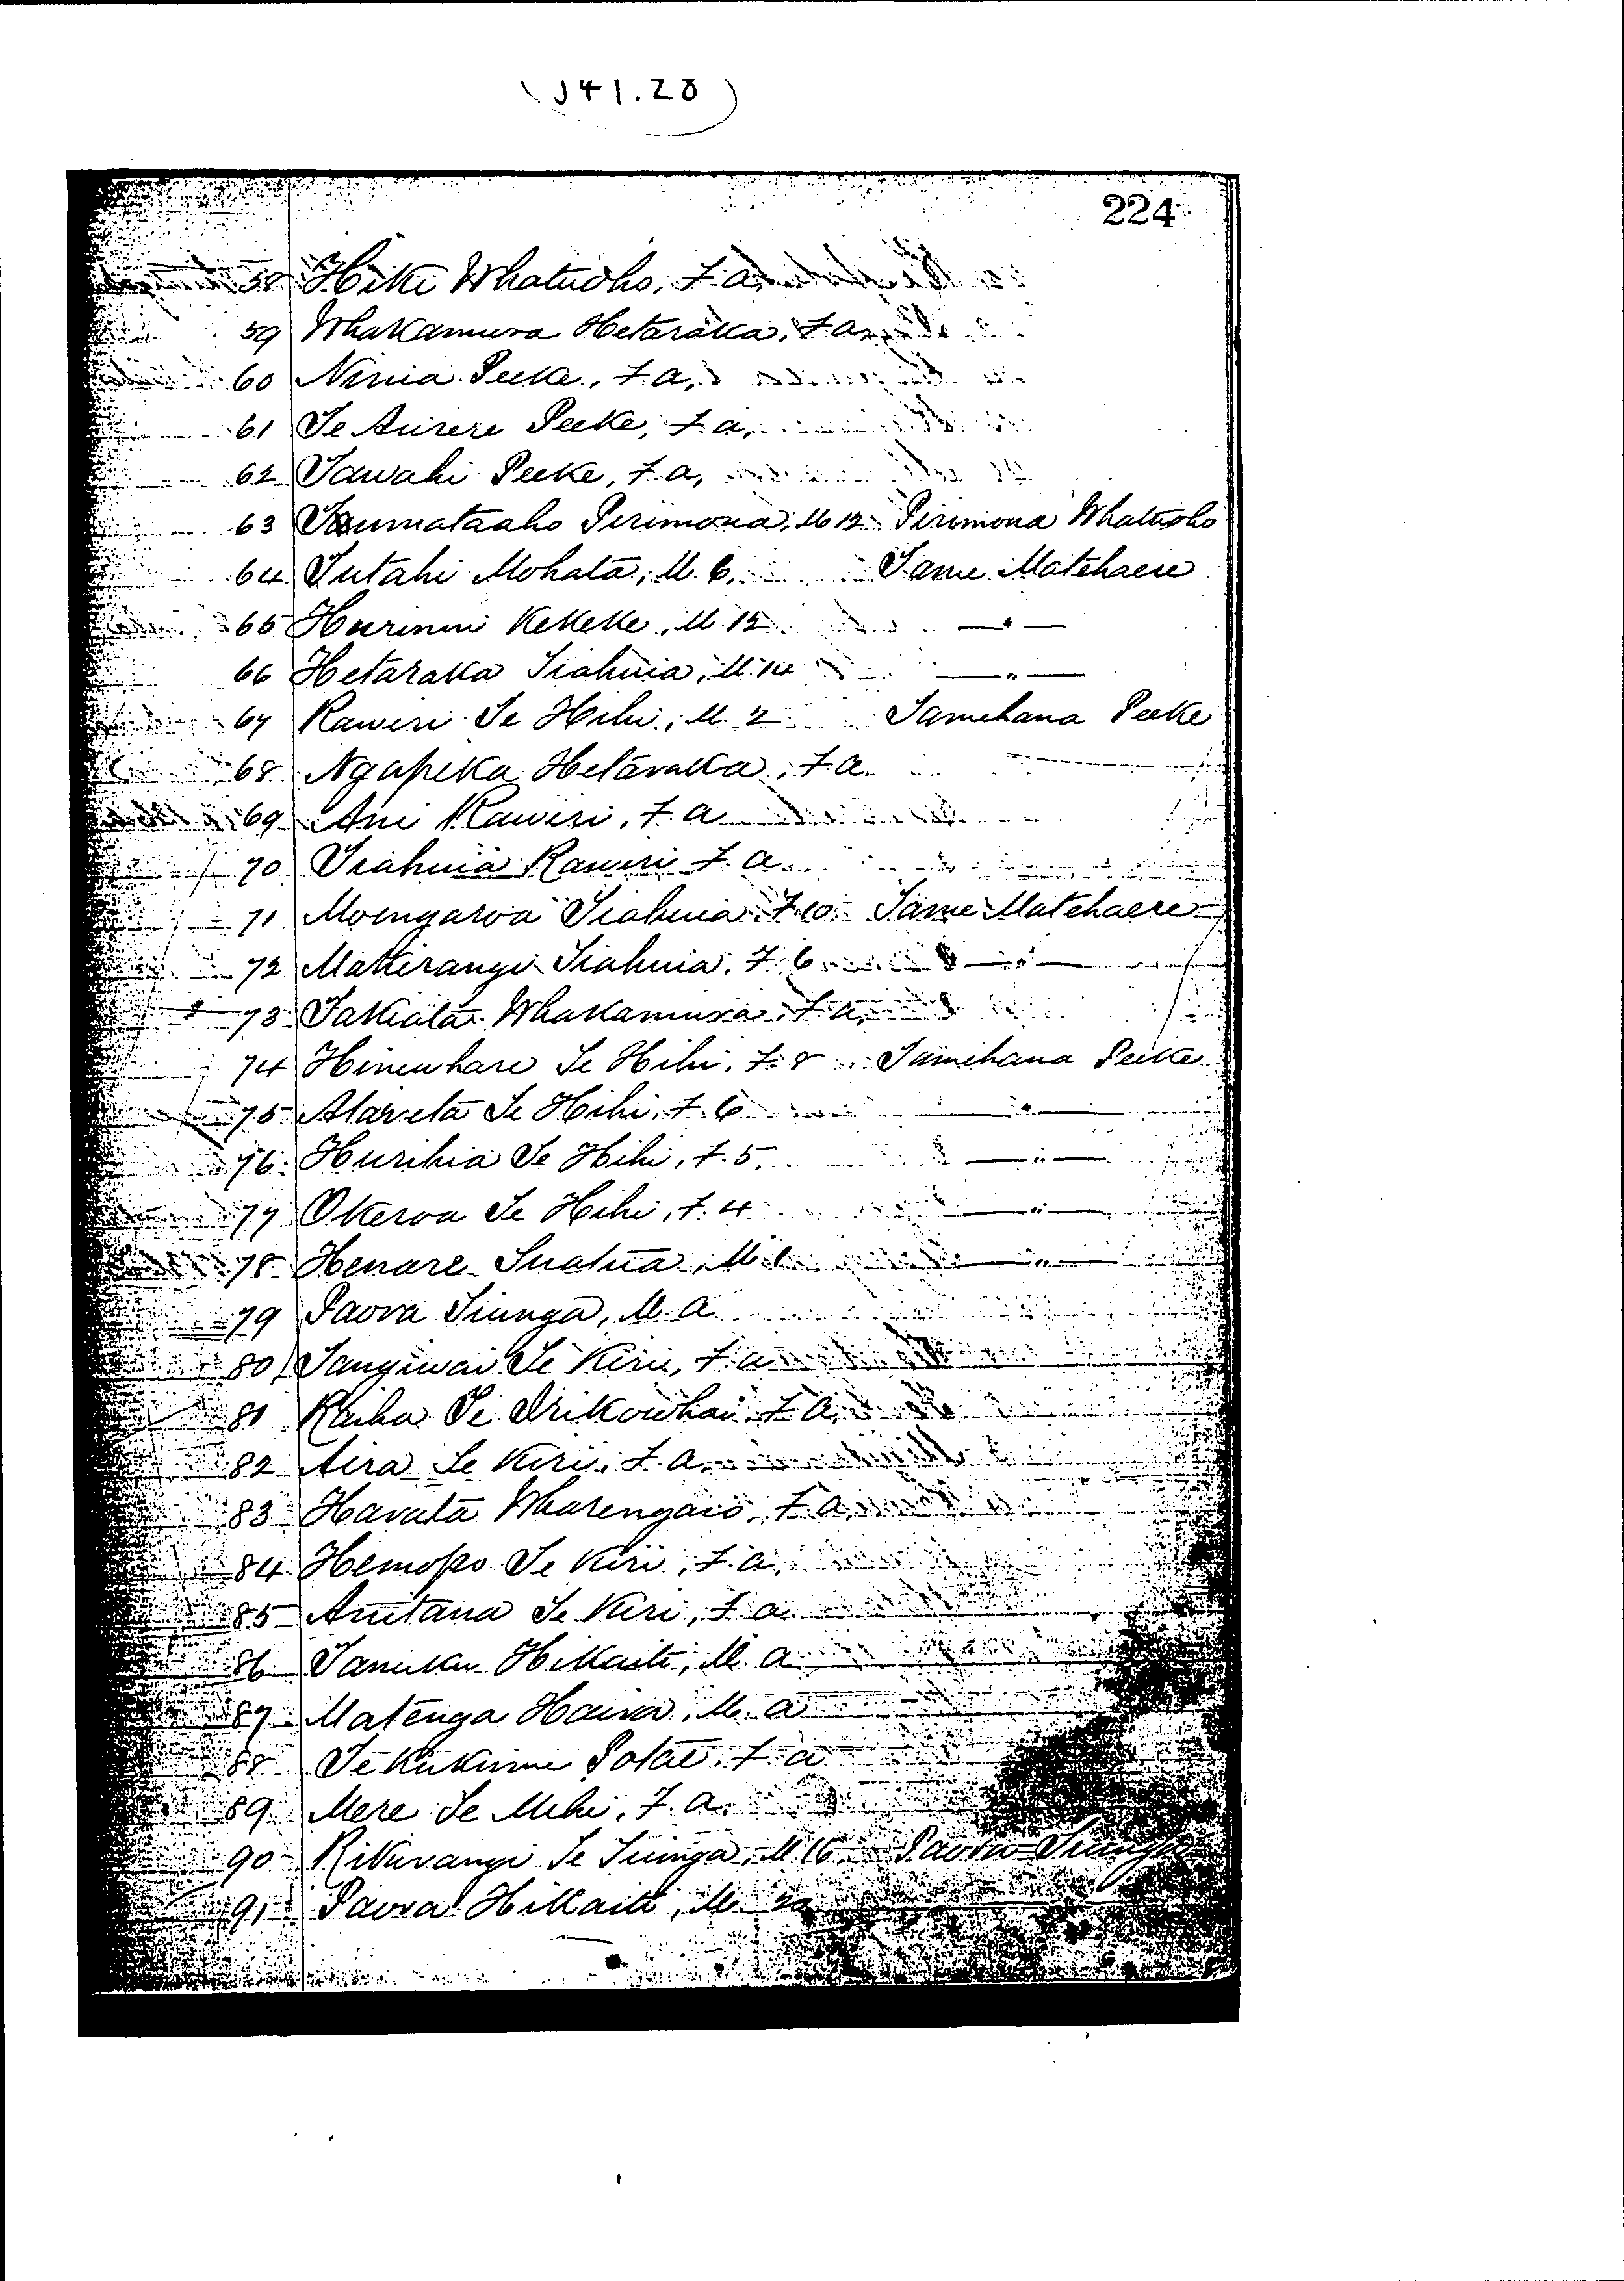 (J41.28)
224
58 Hiki Whatuoho, F. a.
59 Whakamura Hetaraka, F. a.
60 Ninia Peeke, F. a,
61 Te Aurere Peeke, F. a,
62 Tawahi Peeke, F. a,
63 Taumataaho Pirimona, M 12 Pirimona Whatuoho
64 Tutahi Mohata, M. 6, Tame Matehaere
65 Hurinui Kekeke, M. 12 —"—
66 Hetaraka Tiahuia, M. 14 —"—
67 Rawiri Te Hihi, M. 2 Tamehana Peeke
68 Ngapeka Hetaraka, F. a.
69 Ani Rawiri, F. a
70 Tiahuia Rawiri F. a
71 Moengaroa Tiahuia F. 10 Tame Matehaere
72 Makerangi Tiahuia, F. 6 —"—
73 Takiata Whakamura, F. a,
74 Hinewhare Te Hihi, F. 8 Tamehana Peeke
75 Atareta Te Hihi, F. 6 —"—
76 Hurihia Te Hihi, F. 5, —"—
77 Okeroa Te Hihi, F. 4 —"—
78 Henare Tuatua, M 1 —"—
79 Paora Tiunga, M. a
80 Tangiwai Te Kiri, F. a
81 Raiha Te Orikowhai, F. a,
82 Aira Te Kiri, F. a.
83 Harata Wharengaio, F. a
84 Hemopo Te Kiri, F. a,
85 Anitana Te Kiri, F. a.
86 Taniku Hikaiti, M. a
87 Matenga Haira, M. a
88 Te Kukume Potae, F. a
89 Mere Te Mihi, F. a.
90 Rikurangi Te Tiunga, M 16 Paora Tiunga
91 Paora Hikaiti, M